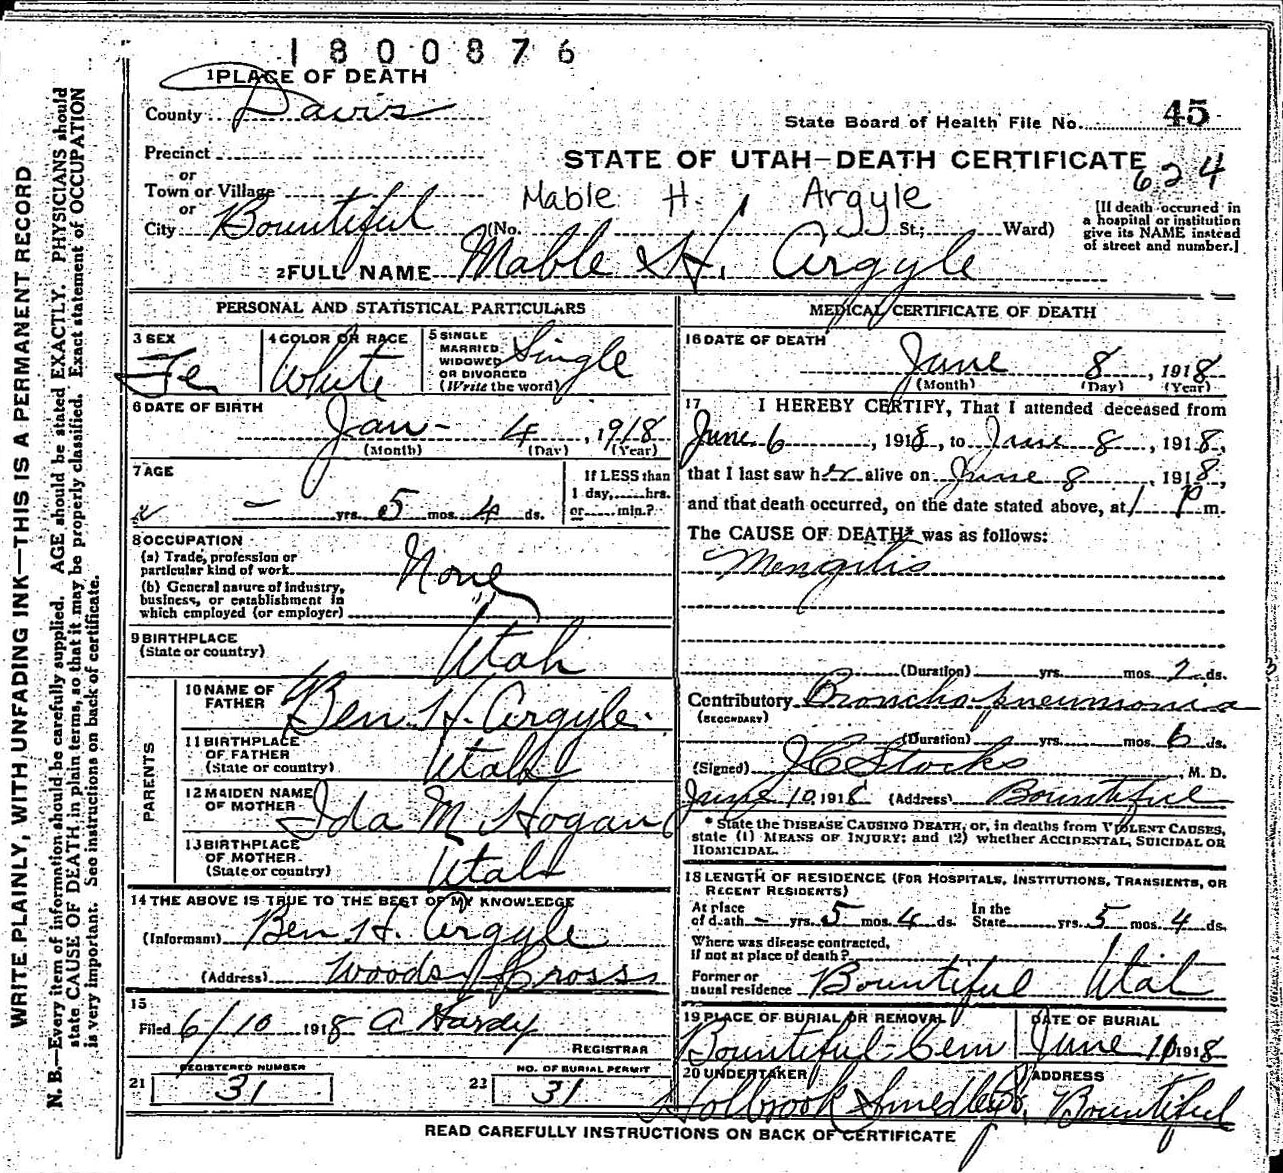 1800876
1 PLACE OF DEATH
County Davis
State Board of Health File No. 45
Precinct
STATE OF UTAH—DEATH CERTIFICATE
624
or
Town or Village
Mable H. Argyle
or
City Bountiful (No. St.; Ward)
[If death occurred in a hospital or institution give its NAME instead of street and number.]
2 FULL NAME Mable H. Argyle
PERSONAL AND STATISTICAL PARTICULARS
3 SEX
Fe
4 COLOR OR RACE
White
5 SINGLE
MARRIED
WIDOWED
OR DIVORCED
(Write the word)
Single
6 DATE OF BIRTH
Jan- 4, 1918
(Month) (Day) (Year)
7 AGE
— yrs. 5 mos. 4 ds.
If LESS than
1 day, hrs.
or min.?
8 OCCUPATION
(a) Trade, profession or
particular kind of work None
(b) General nature of industry,
business, or establishment in
which employed (or employer)
9 BIRTHPLACE
(State or country) Utah
PARENTS
10 NAME OF
FATHER Ben. H. Argyle.
11 BIRTHPLACE
OF FATHER
(State or country) Utah
12 MAIDEN NAME
OF MOTHER Ida M Hogan
13 BIRTHPLACE
OF MOTHER
(State or country) Utah
14 THE ABOVE IS TRUE TO THE BEST OF MY KNOWLEDGE
(Informant) Ben H. Argyle
(Address) Woods Cross
15
Filed 6/10 1918 A Hardy
REGISTRAR
21 REGISTERED NUMBER
31
22 NO. OF BURIAL PERMIT
31
MEDICAL CERTIFICATE OF DEATH
16 DATE OF DEATH
June 8, 1918
(Month) (Day) (Year)
17 I HEREBY CERTIFY, That I attended deceased from
June 6, 1918, to June 8, 1918,
that I last saw her alive on June 8, 1918,
and that death occurred, on the date stated above, at 1 P m.
The CAUSE OF DEATH* was as follows:
Mengitis
(Duration) yrs. mos. 2 ds.
Contributory Broncho-pneumonia
(SECONDARY)
(Duration) yrs. mos. 6 ds.
(Signed) J C Stocks, M. D.
June 10, 1918 (Address) Bountiful
* State the DISEASE CAUSING DEATH; or, in deaths from VIOLENT CAUSES,
state (1) MEANS OF INJURY; and (2) whether ACCIDENTAL, SUICIDAL OR
HOMICIDAL.
18 LENGTH OF RESIDENCE (FOR HOSPITALS, INSTITUTIONS, TRANSIENTS, OR
RECENT RESIDENTS)
At place
of death — yrs. 5 mos. 4 ds. In the
State yrs. 5 mos. 4 ds.
Where was disease contracted,
if not at place of death?
Former or
usual residence Bountiful Utah
19 PLACE OF BURIAL OR REMOVAL
Bountiful-Cem
DATE OF BURIAL
June 10 1918
20 UNDERTAKER
Holbrook Smedley
ADDRESS
Bountiful
READ CAREFULLY INSTRUCTIONS ON BACK OF CERTIFICATE
WRITE PLAINLY, WITH UNFADING INK—THIS IS A PERMANENT RECORD
N. B.—Every item of information should be carefully supplied. AGE should be stated EXACTLY. PHYSICIANS should
state CAUSE OF DEATH in plain terms, so that it may be properly classified. Exact statement of OCCUPATION
is very important. See instructions on back of certificate.